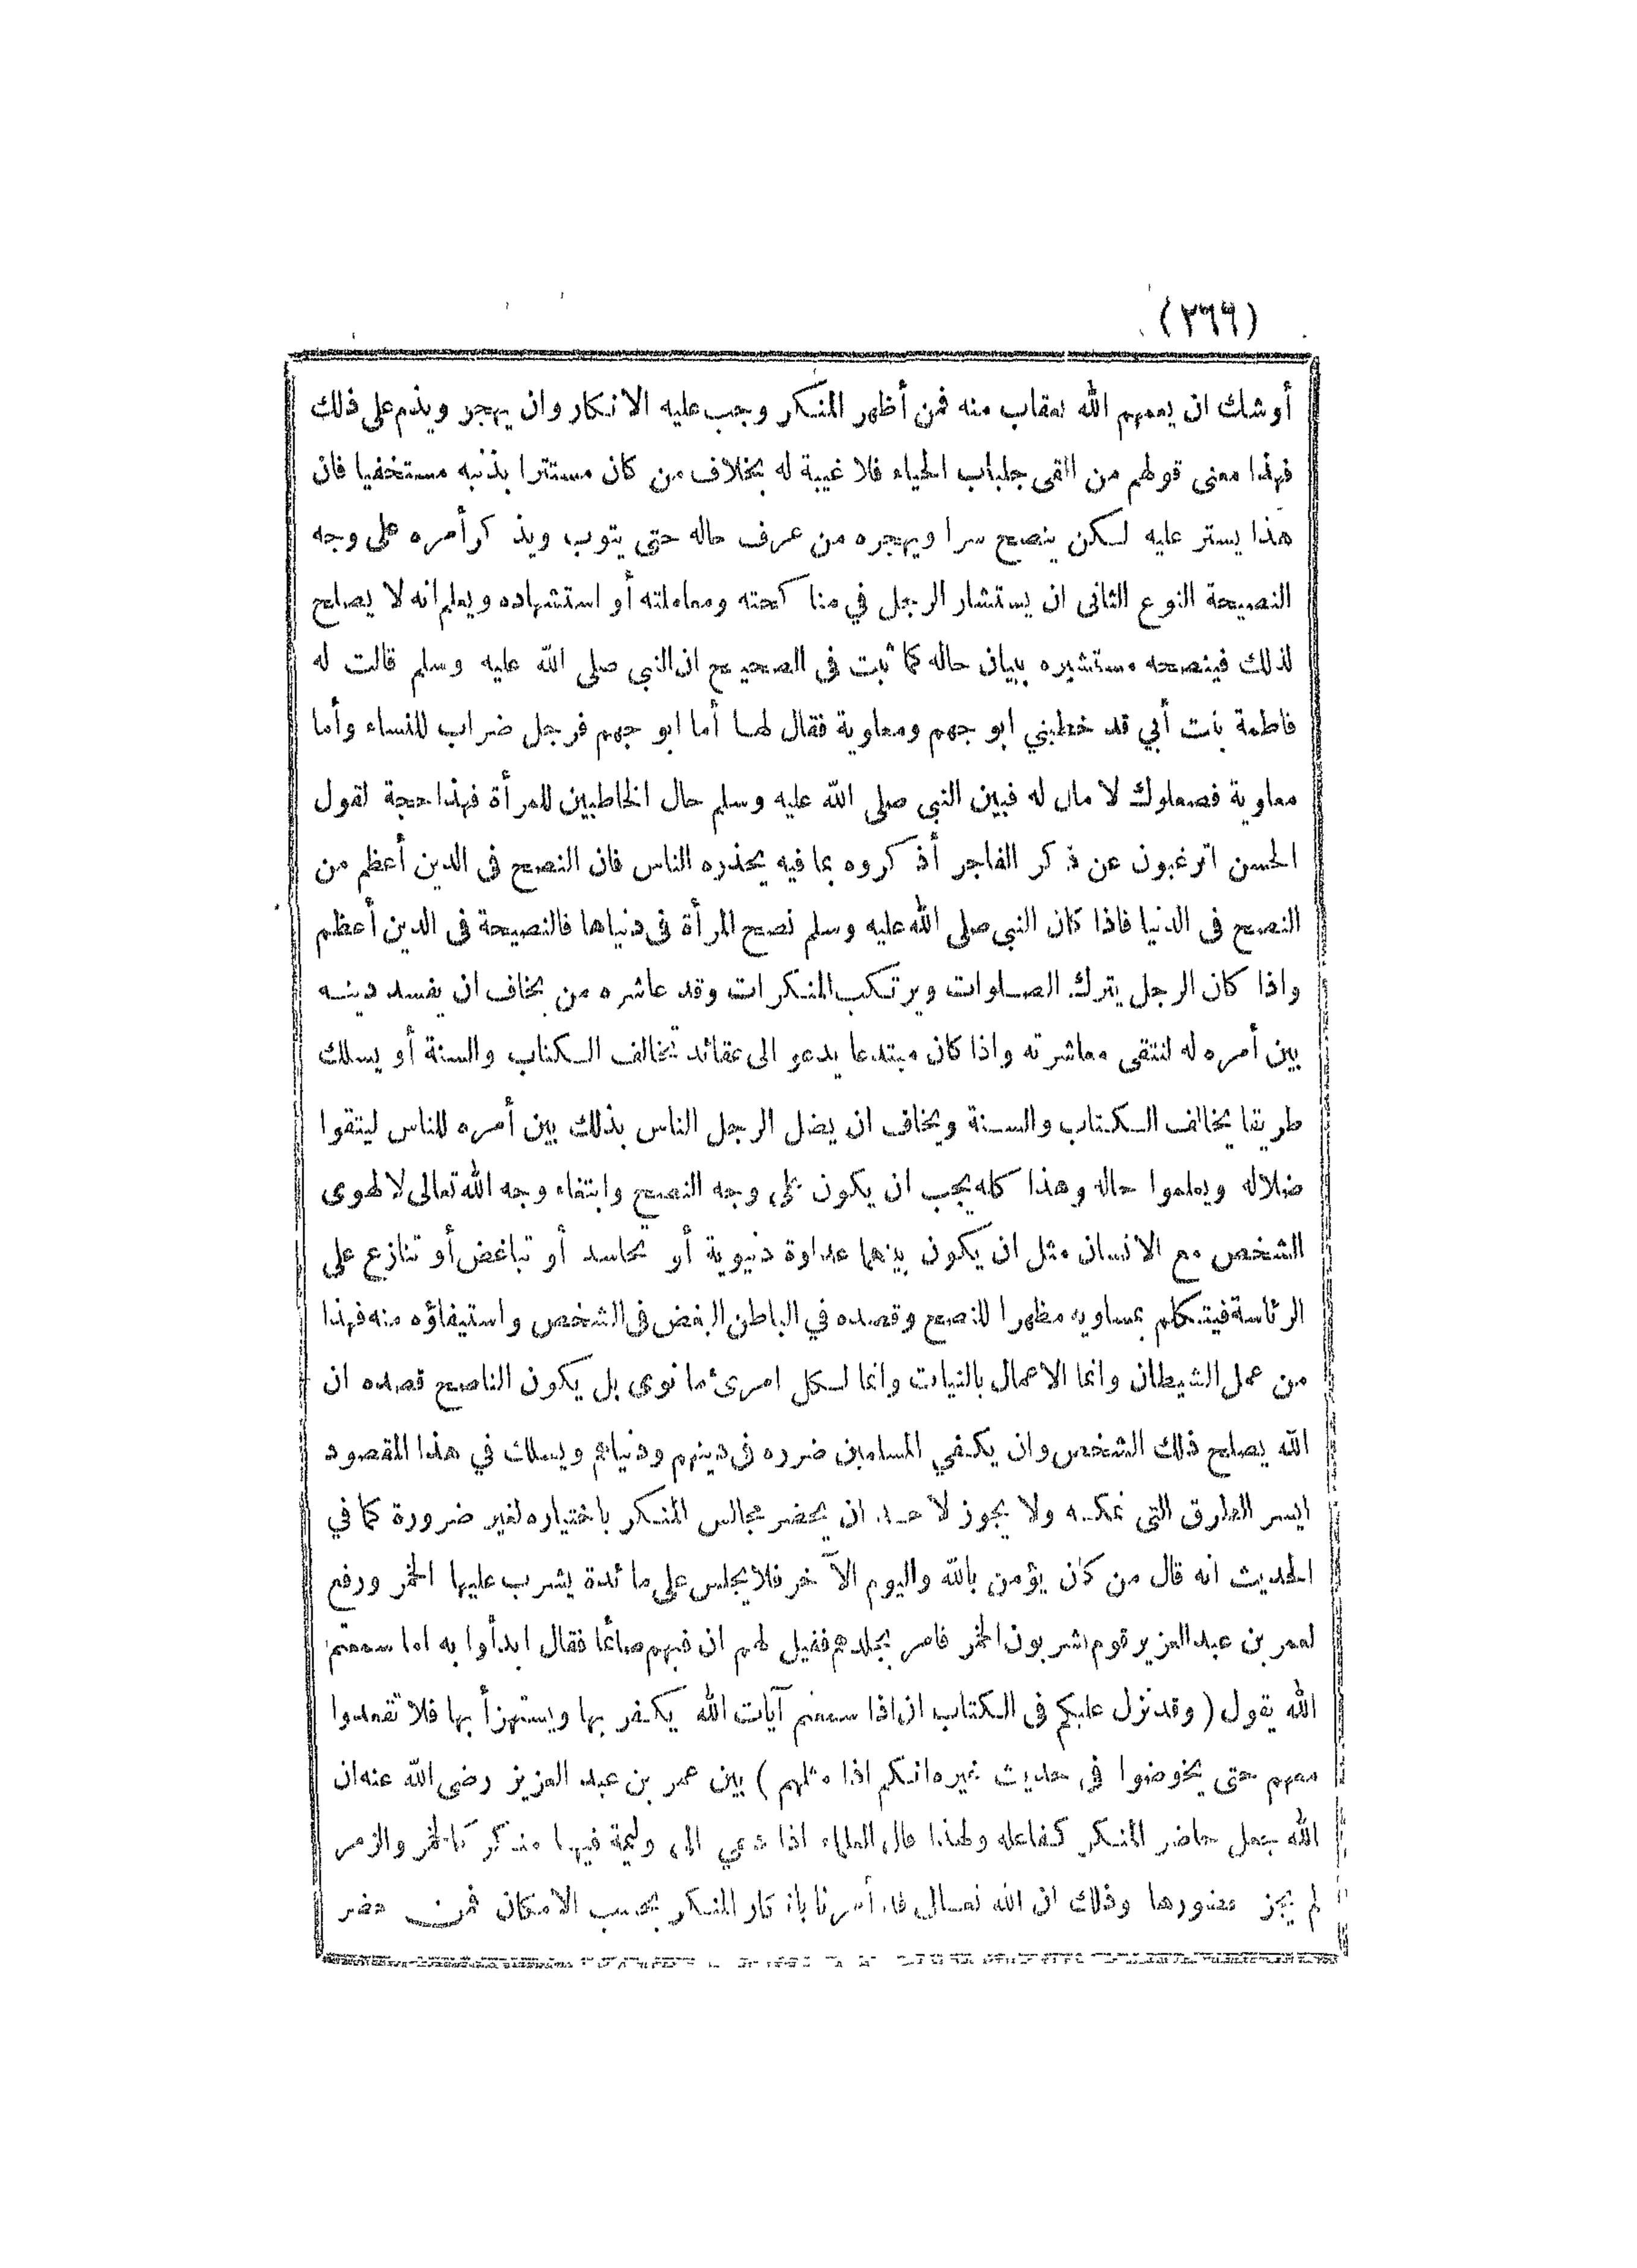 (٢٦٩)
أوشك ان يعمهم الله بعقاب منه فمن أظهر المنكر وجب عليه الانكار وان يهجر ويذم على ذلك
فهذا معنى قولهم من القى جلباب الحياء فلا غيبة له بخلاف من كان مستترا بذنبه مستخفيا فان
هذا يستر عليه لكن ينصح سرا ويهجره من عرف حاله حتى يتوب ويذكر أمره على وجه
النصيحة النوع الثانى ان يستشار الرجل في مناكحته ومعاملته أو استشهاده ويعلم انه لا يصلح
لذلك فينصحه مستشيره ببيان حاله كما ثبت فى الصحيح ان النبي صلى الله عليه وسلم قالت له
فاطمة بنت أبي قد خطبني ابو جهم ومعاوية فقال لها أما ابو جهم فرجل ضراب للنساء وأما
معاوية فصعلوك لا مال له فبين النبي صلى الله عليه وسلم حال الخاطبين للمرأة فهذا حجة لقول
الحسن اترغبون عن ذكر الفاجر أذكروه بما فيه يحذره الناس فان النصح فى الدين أعظم من
النصح فى الدنيا فاذا كان النبي صلى الله عليه وسلم نصح المرأة فى دنياها فالنصيحة فى الدين أعظم
واذا كان الرجل يترك الصلوات ويرتكب المنكرات وقد عاشره من يخاف ان يفسد دينه
بين أمره له لتتقى معاشرته واذا كان مبتدعا يدعو الى عقائد تخالف الكتاب والسنة أو يسلك
طريقا يخالف الكتاب والسنة ويخاف ان يضل الرجل الناس بذلك بين أمره للناس ليتقوا
ضلاله ويعلموا حاله وهذا كله يجب ان يكون على وجه النصح وابتغاء وجه الله تعالى لا لهوى
الشخص مع الانسان مثل ان يكون بينهما عداوة دنيوية أو تحاسد أو تباغض أو تنازع على
الرئاسة فيتكلم بمساويه مظهرا للنصح وقصده في الباطن البغض فى الشخص واستيفاؤه منه فهذا
من عمل الشيطان وانما الاعمال بالنيات وانما لكل امرئ ما نوى بل يكون الناصح قصده ان
الله يصلح ذلك الشخص وان يكفي المسلمين ضرره فى دينهم ودنياهم ويسلك في هذا المقصود
ايسر الطرق التى تمكنه ولا يجوز لاحد ان يحضر مجالس المنكر باختياره لغير ضرورة كما في
الحديث انه قال من كان يؤمن بالله واليوم الآخر فلا يجلس على مائدة يشرب عليها الخمر ورفع
لعمر بن عبد العزيز قوم شربون الخمر فامر بجلدهم فقيل لهم ان فيهم صائما فقال ابدأوا به اما سمعتم
الله يقول (وقد نزل عليكم فى الكتاب ان اذا سمعتم آيات الله يكفر بها ويستهزأ بها فلا تقعدوا
معهم حتى يخوضوا فى حديث غيره انكم اذا مثلهم) بين عمر بن عبد العزيز رضى الله عنه ان
الله جعل حاضر المنكر كفاعله ولهذا قال العلماء اذا دعي الى وليمة فيها منكر كالخمر والزمر
لم يجز حضورها وذلك ان الله تعالى قد أمرنا بانكار المنكر بحسب الامكان فمن حضر